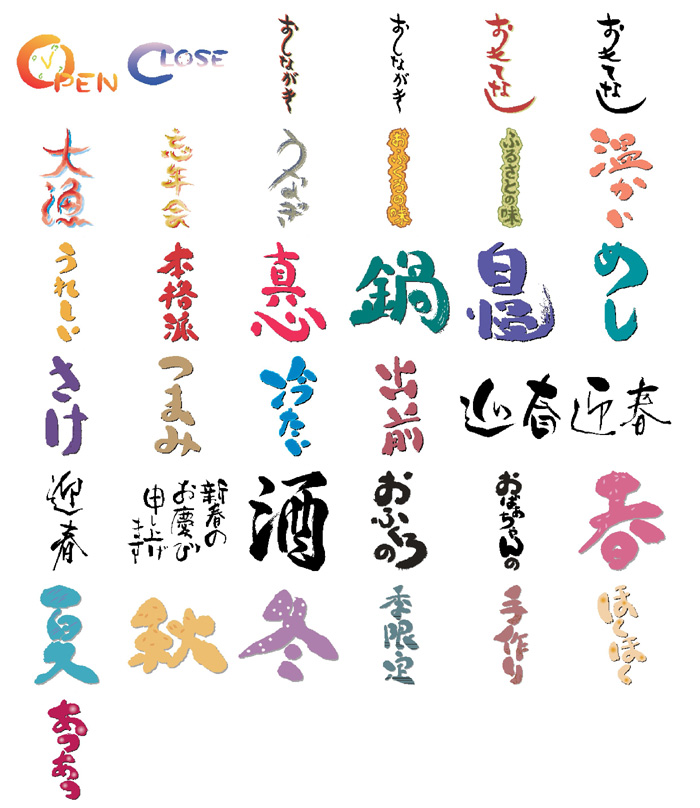 OPEN
CLOSE
おしながき
おしながき
おもてなし
おもてなし
大漁
忘年会
うなぎ
おふくろの味
ふるさとの味
温かい
うれしい
本格派
真心
鍋
自慢
めし
さけ
つまみ
冷たい
出前
迎春
迎春
迎春
新春の
お慶び
申し上げ
ます
酒
おふくろの
おばあちゃんの
春
夏
秋
冬
季限定
手作り
ほくほく
あつあつ